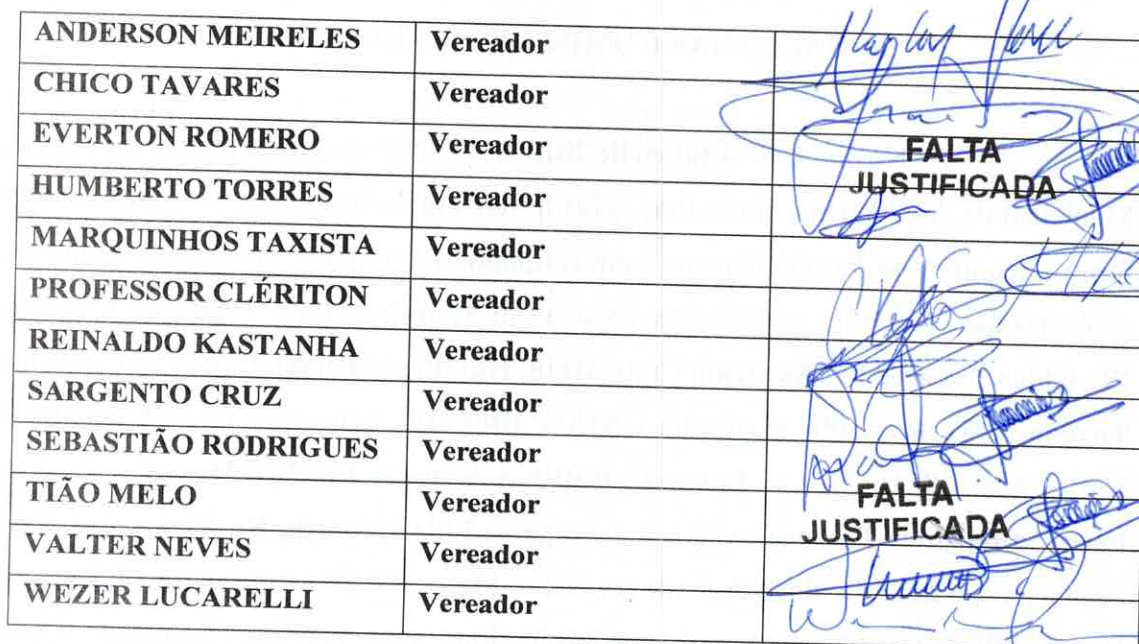 ANDERSON MEIRELES Vereador
CHICO TAVARES Vereador
EVERTON ROMERO Vereador FALTA
HUMBERTO TORRES Vereador JUSTIFICADA
MARQUINHOS TAXISTA Vereador
PROFESSOR CLÉRITON Vereador
REINALDO KASTANHA Vereador
SARGENTO CRUZ Vereador
SEBASTIÃO RODRIGUES Vereador
TIÃO MELO Vereador FALTA
JUSTIFICADA
VALTER NEVES Vereador
WEZER LUCARELLI Vereador